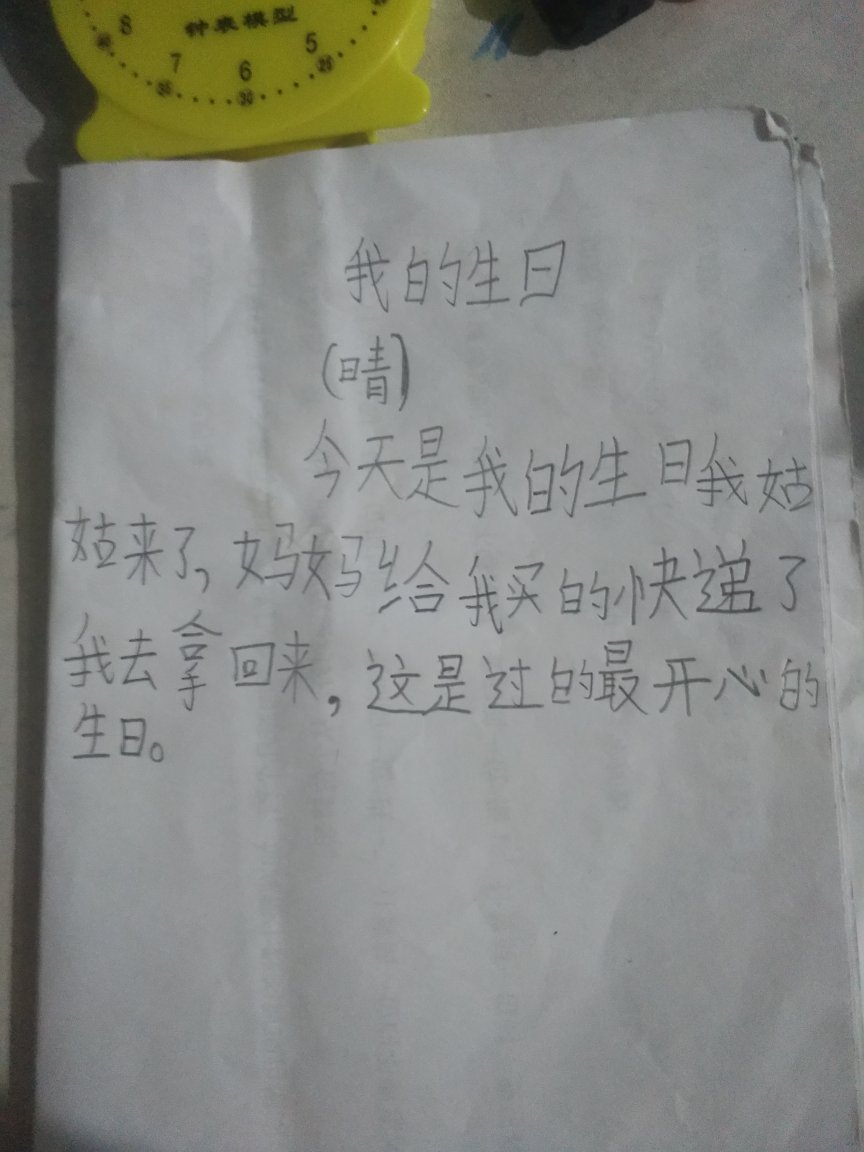 8 钟表模型 5
7 6
35 30 25
我的生日
(晴)
今天是我的生日我姑
姑来了,妈妈给我买的快递了
我去拿回来,这是过的最开心的
生日。